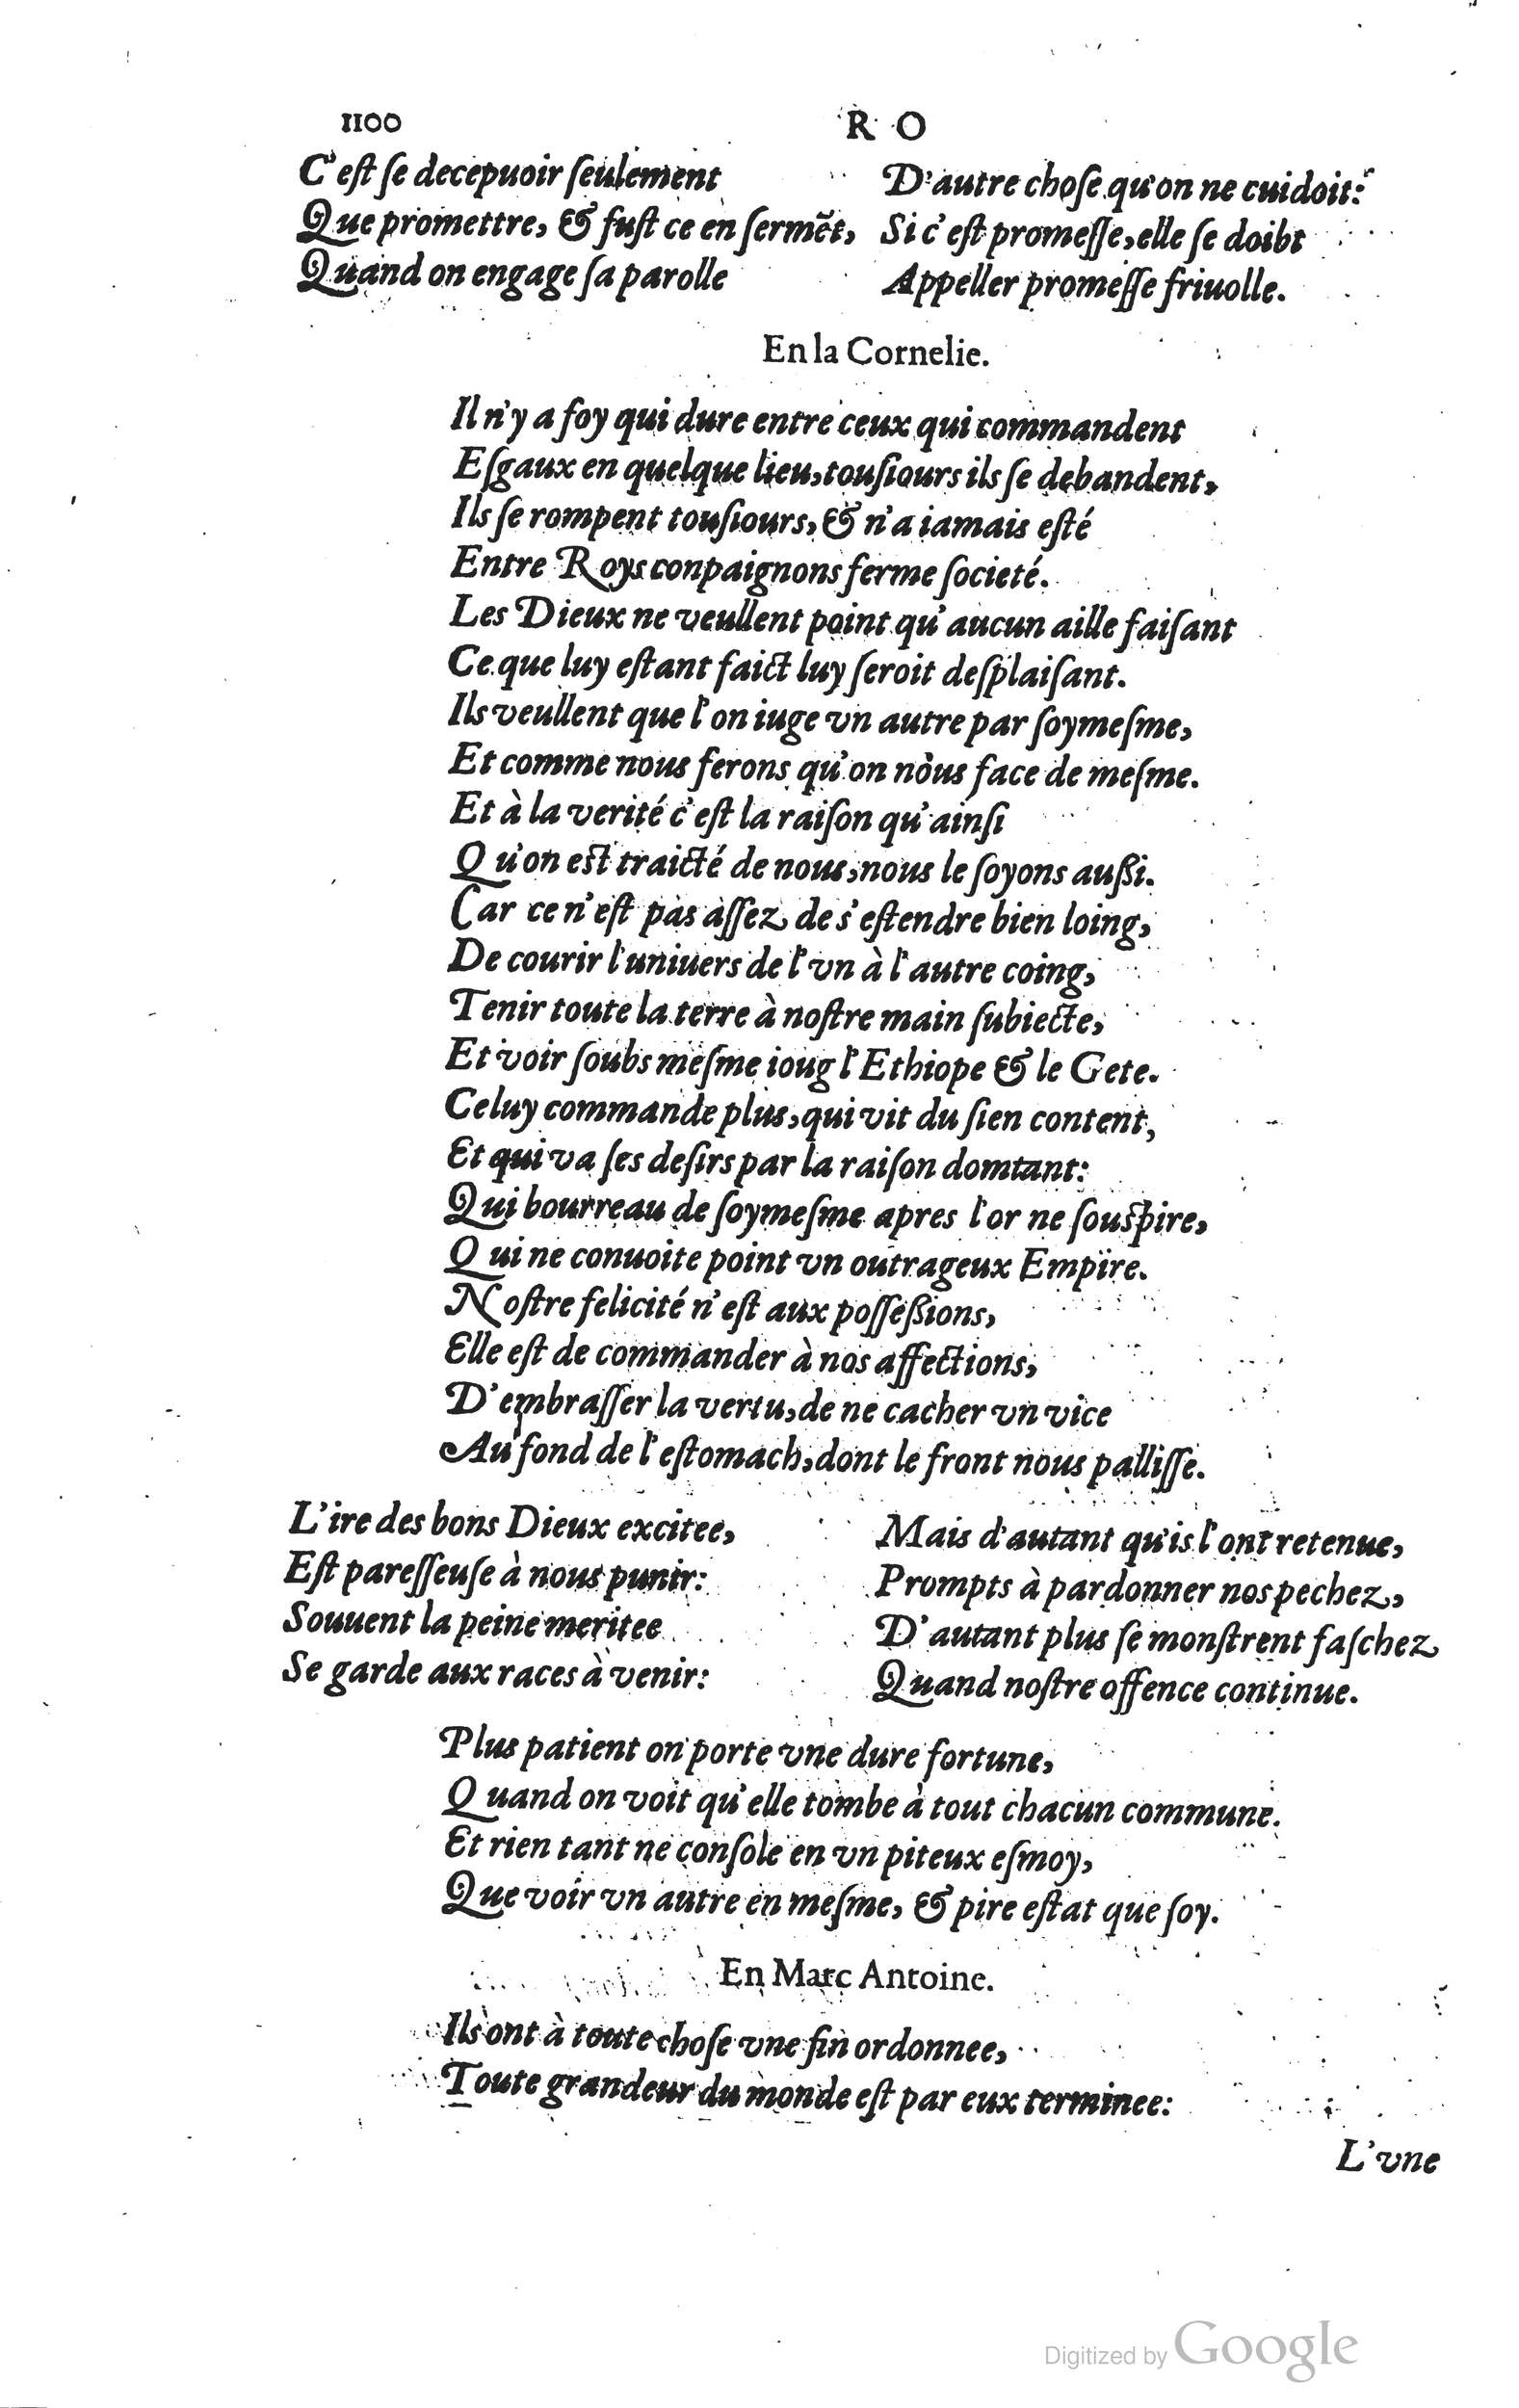 1100 R O
C'est se decepuoir seulement
Que promettre, & fust ce en sermēt,
Quand on engage sa parolle
D'autre chose qu'on ne cuidoit:
Si c'est promesse, elle se doibt
Appeller promesse friuolle.
En la Cornelie.
Il n'y a foy qui dure entre ceux qui commandent
Esgaux en quelque lieu, tousiours ils se debandent,
Ils se rompent tousiours, & n'a iamais esté
Entre Roys conpaignons ferme societé.
Les Dieux ne veullent point qu'aucun aille faisant
Ce que luy estant faict luy seroit desplaisant.
Ils veullent que l'on iuge vn autre par soymesme,
Et comme nous ferons qu'on nous face de mesme.
Et à la verité c'est la raison qu'ainsi
Qu'on est traicté de nous, nous le soyons aussi.
Car ce n'est pas assez de s'estendre bien loing,
De courir l'uniuers de l'vn à l'autre coing,
Tenir toute la terre à nostre main subiecte,
Et voir soubs mesme ioug l'Ethiope & le Gete.
Celuy commande plus, qui vit du sien content,
Et qui va ses desirs par la raison domtant:
Qui bourreau de soymesme apres l'or ne souspire,
Qui ne conuoite point vn outrageux Empire.
Nostre felicité n'est aux possessions,
Elle est de commander à nos affections,
D'embrasser la vertu, de ne cacher vn vice
Au fond de l'estomach, dont le front nous pallisse.
L'ire des bons Dieux excitee,
Est paresseuse à nous punir:
Souuent la peine meritee
Se garde aux races à venir:
Mais d'autant qu'is l'ont retenue,
Prompts à pardonner nos pechez,
D'autant plus se monstrent faschez
Quand nostre offence continue.
Plus patient on porte vne dure fortune,
Quand on voit qu'elle tombe à tout chacun commune.
Et rien tant ne console en vn piteux esmoy,
Que voir vn autre en mesme, & pire estat que soy.
En Marc Antoine.
Ils ont à toute chose vne fin ordonnee,
Toute grandeur du monde est par eux terminee:
L'vne
Digitized by Google